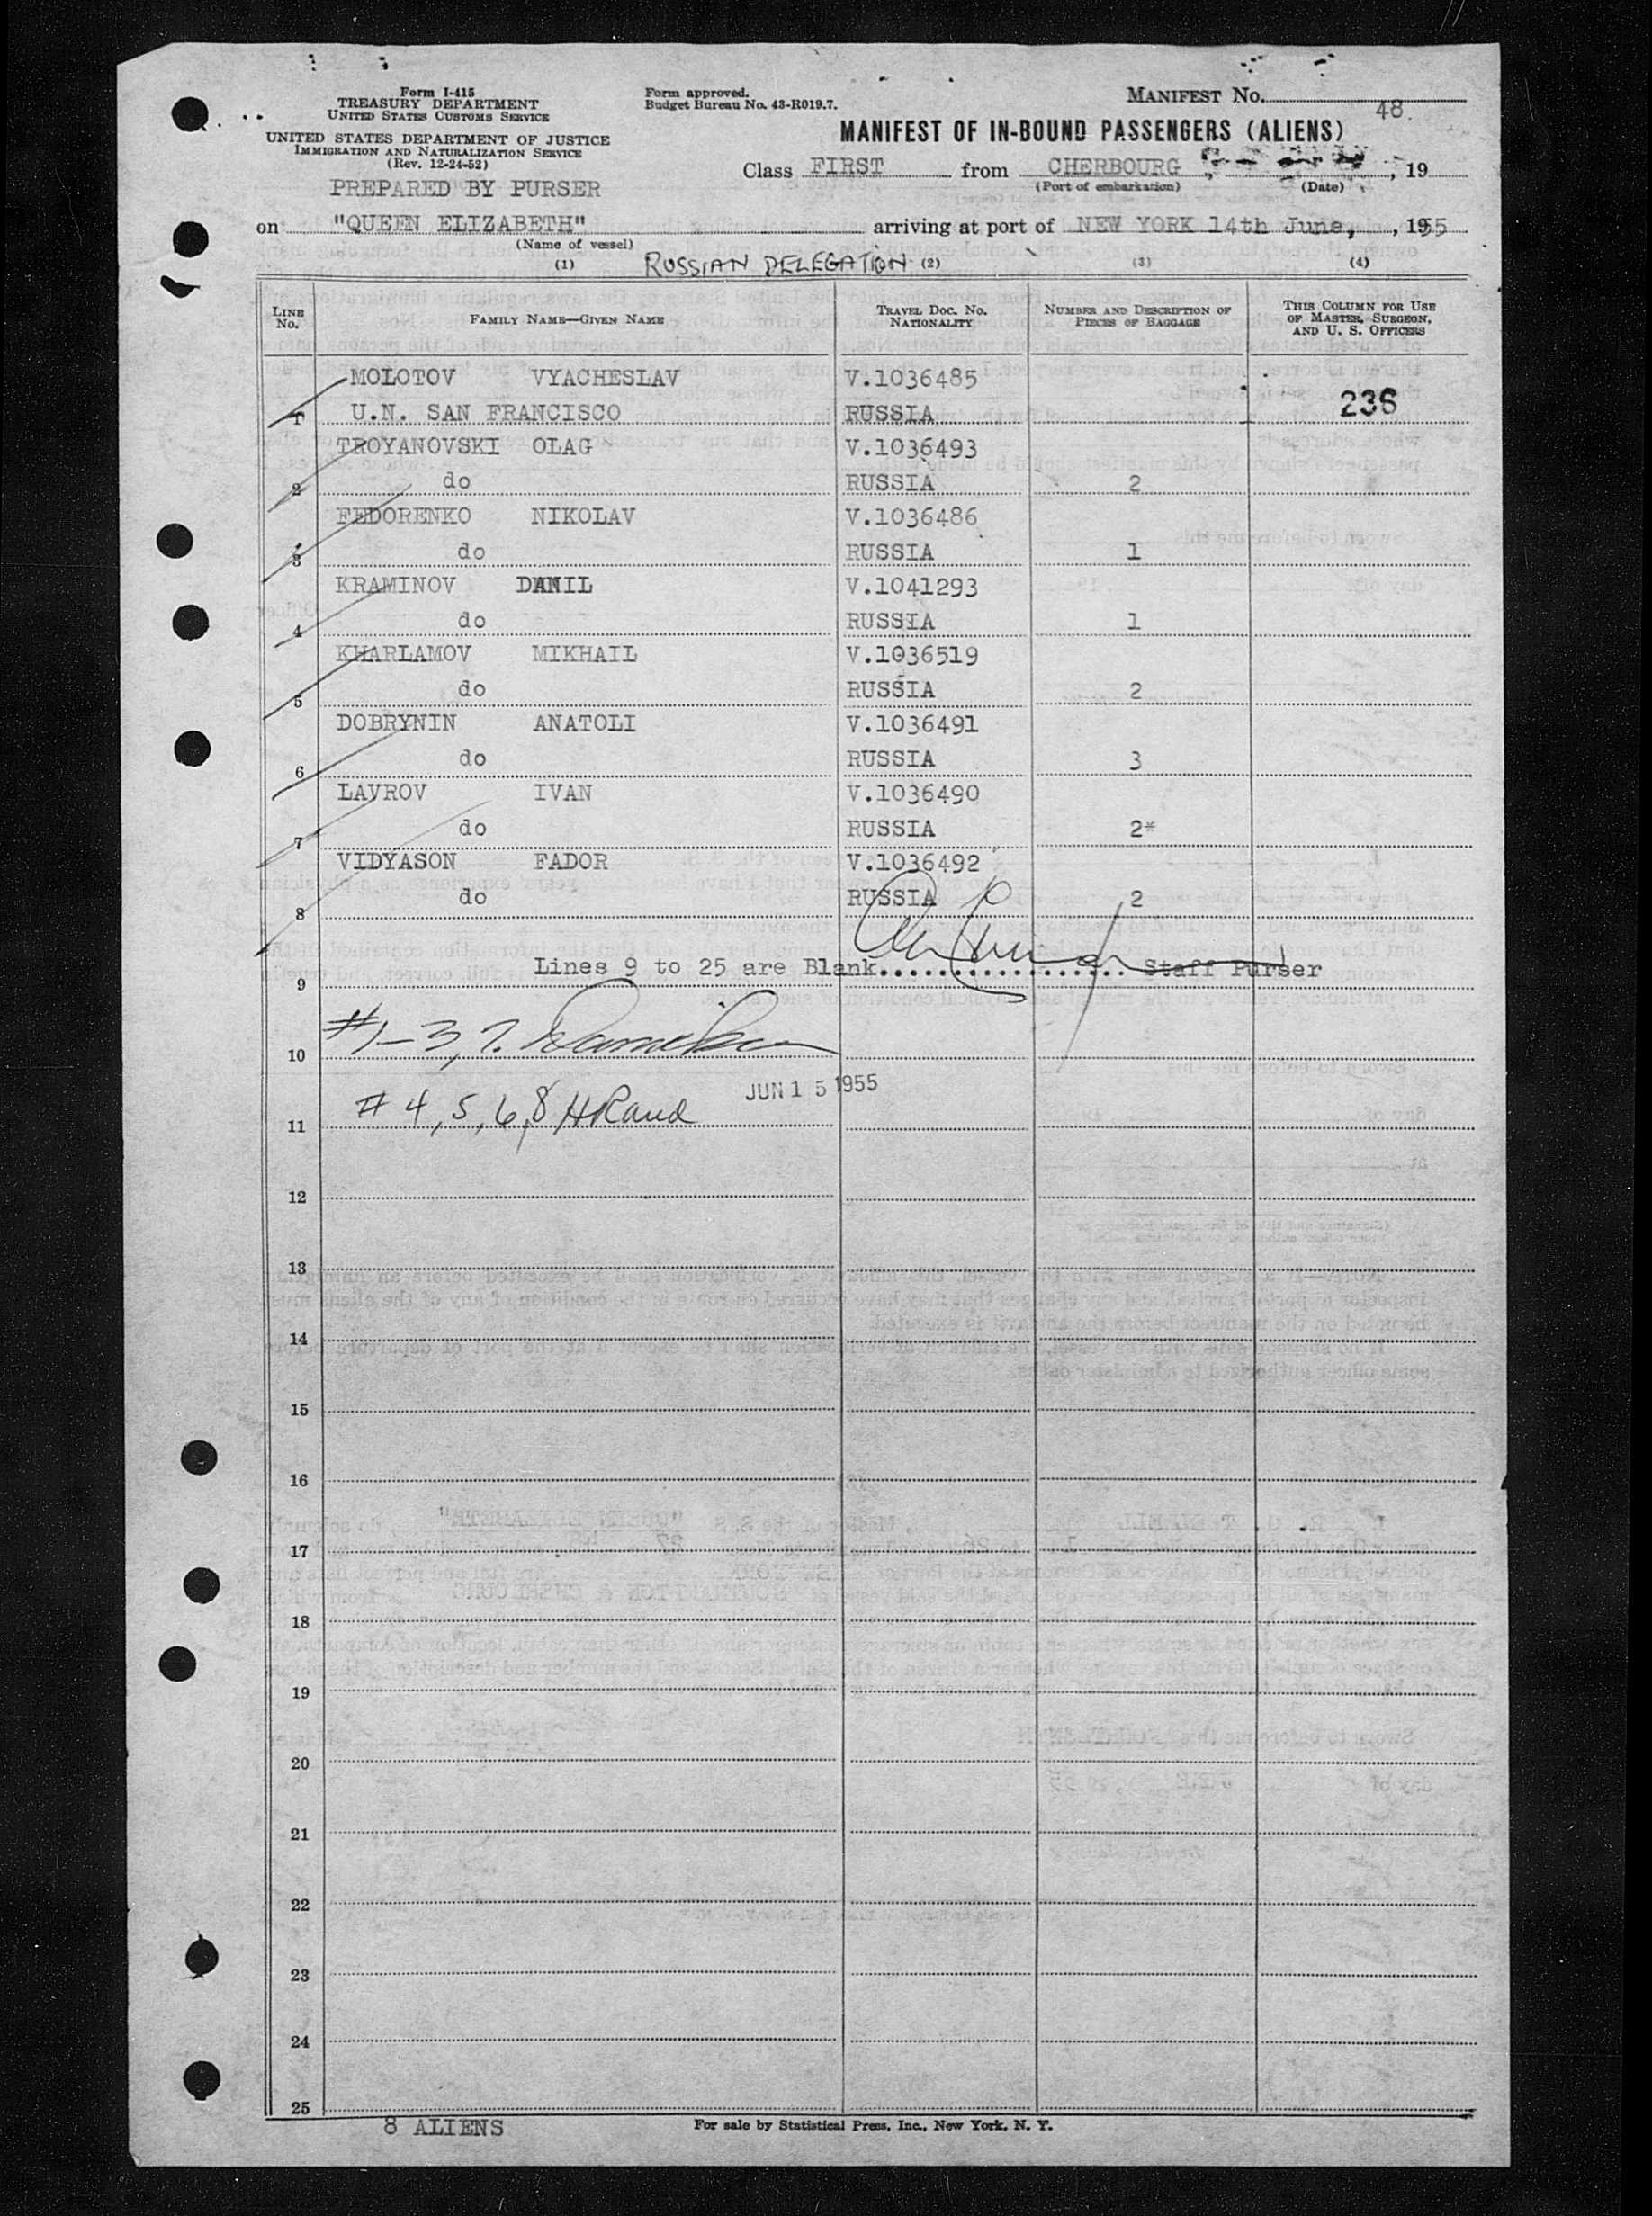 Form I-415
TREASURY DEPARTMENT
UNITED STATES CUSTOMS SERVICE
UNITED STATES DEPARTMENT OF JUSTICE
IMMIGRATION AND NATURALIZATION SERVICE
(Rev. 12-24-52)
PREPARED BY PURSER
Form approved.
Budget Bureau No. 43-R019.7.
MANIFEST No.
48.
MANIFEST OF IN-BOUND PASSENGERS (ALIENS)
Class FIRST from CHERBOURG , 19
(Port of embarkation) (Date)
on "QUEEN ELIZABETH" arriving at port of NEW YORK 14th June, , 1955
(Name of vessel)
(1) RUSSIAN DELEGATION (2) (3) (4)
LINE No. FAMILY NAME—GIVEN NAME TRAVEL DOC. NO. NATIONALITY NUMBER AND DESCRIPTION OF PIECES OF BAGGAGE THIS COLUMN FOR USE OF MASTER, SURGEON, AND U. S. OFFICERS
MOLOTOV VYACHESLAV V.1036485
1 U.N. SAN FRANCISCO RUSSIA 236
TROYANOVSKI OLAG V.1036493
2 do RUSSIA 2
FEDORENKO NIKOLAV V.1036486
3 do RUSSIA 1
KRAMINOV DANIL V.1041293
4 do RUSSIA 1
KHARLAMOV MIKHAIL V.1036519
5 do RUSSIA 2
DOBRYNIN ANATOLI V.1036491
6 do RUSSIA 3
LAVROV IVAN V.1036490
7 do RUSSIA 2*
VIDYASON FADOR V.1036492
8 do RUSSIA 2
9 Lines 9 to 25 are Blank.................. Staff Purser
10 #1-3, 7.
JUN 15 1955
11 # 4, 5, 6, 8 HRand
12
13
14
15
16
17
18
19
20
21
22
23
24
25
8 ALIENS
For sale by Statistical Press, Inc., New York, N. Y.